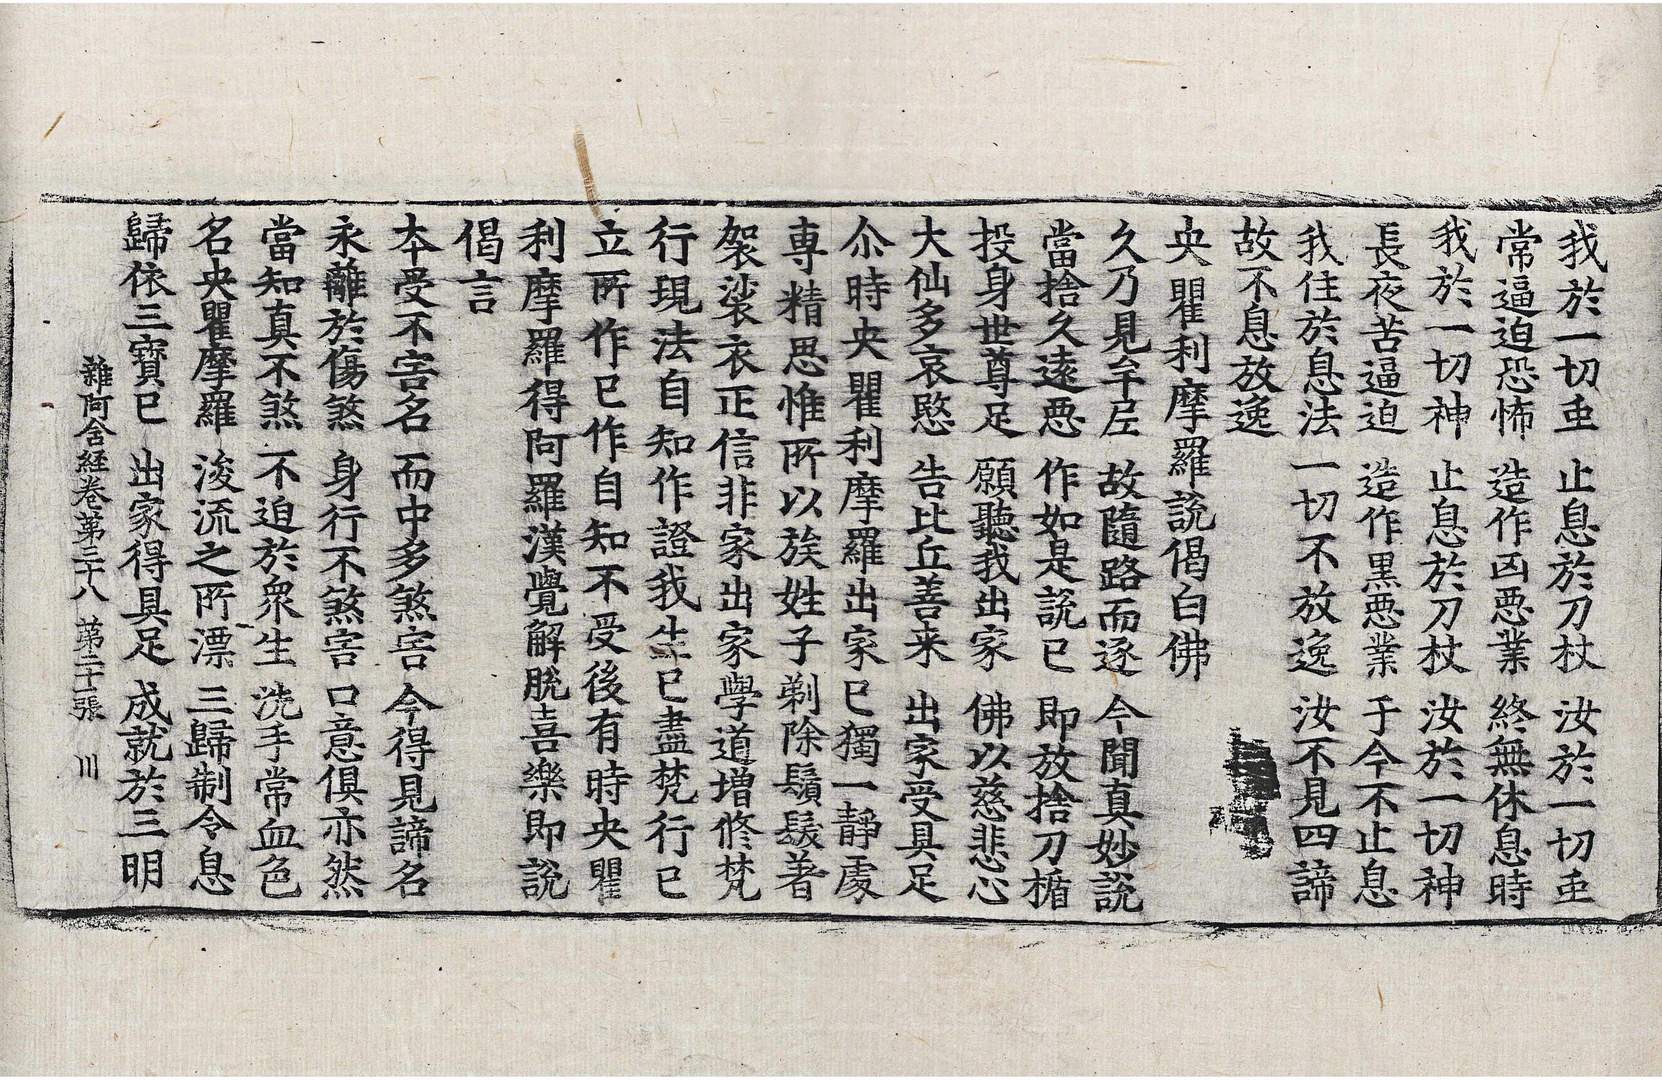 我於一切䖝　止息於刀杖　汝於一切䖝
常逼迫恐怖　造作凶悪業　終無休息時
我於一切神　止息於刀杖　汝於一切神
長夜苦逼迫　造作黒悪業　于今不止息
我住於息法　一切不放逸　汝不見四諦
故不息放逸
央瞿利摩羅說偈白佛
久乃見牟尼　故隨路而逐　今聞真妙說
當捨久遠悪　作如是說已　即放捨刀楯
投身世尊足　願聽我出家　佛以慈悲心
大仙多哀愍　告比丘善来　出家受具足
尒時央瞿利摩羅出家已獨一靜處
専精思惟所以族姓子剃除鬚髮著
袈裟衣正信非家出家學道增修梵
行現法自知作證我生已盡梵行已
立所作已作自知不受後有時央瞿
利摩羅得阿羅漢覺解脫喜樂即說
偈言
本受不害名　而中多煞害　今得見諦名
永離於傷煞　身行不煞害　口意俱亦然
當知真不煞　不迫於衆生　洗手常血色
名央瞿摩羅　浚流之所漂　三歸制令息
歸依三寶已　出家得具足　成就於三明
雜阿含經卷第三十八　第二十一張　川